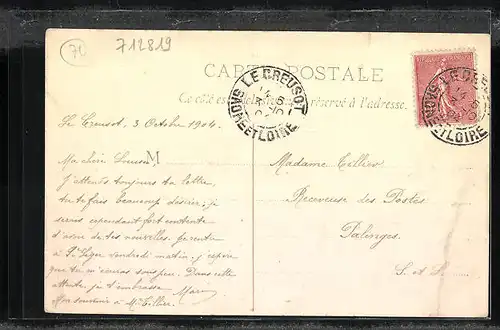 71
712819
CARTE POSTALE
Ce côté est exclusivement réservé à l'adresse.
LE CREUSOT
SAONE ET LOIRE
LE CREUSOT
SAONE ET LOIRE
Le Creusot, 3 Octobre 1904.
M
Ma chère
J'attends toujours ta lettre,
tu te fais beaucoup désirer; je
serais cependant fort contente
d'avoir de tes nouvelles. Je rentre
à St Léger vendredi matin; j'espère
que tu m'écriras sous peu. Dans cette
attente je t'embrasse Marie
Bon souvenir à Me Tillier.
Madame Tillier
Receveuse des Postes
Palinges
S. et L.